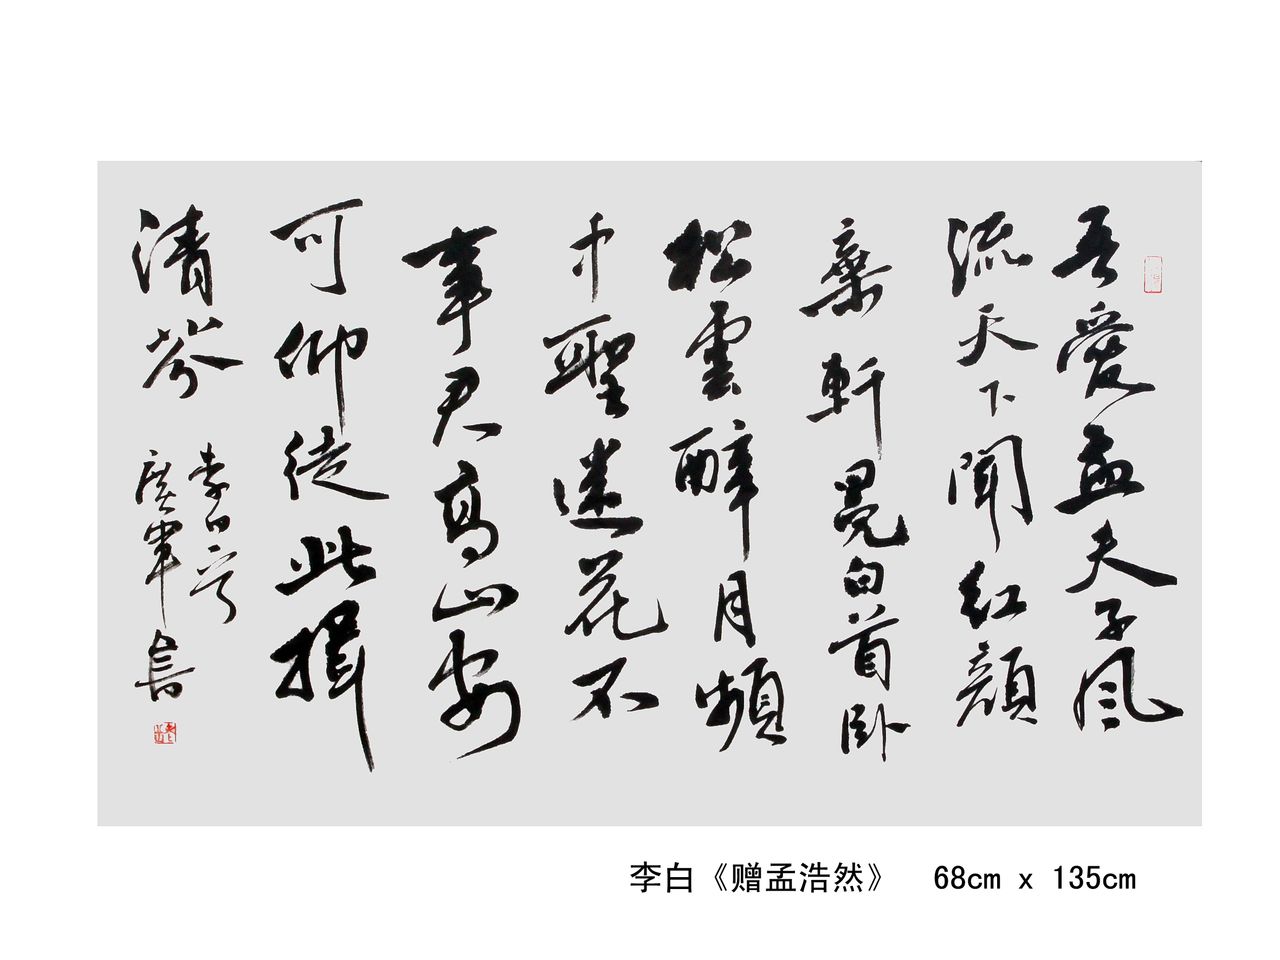 吾愛孟夫子風
流天下聞紅顔
棄軒冕白首卧
松雲醉月頻
中聖迷花不
事君高山安
可仰徒此揖
清芬
李白
廣軍書
李白《赠孟浩然》 68cm x 135cm